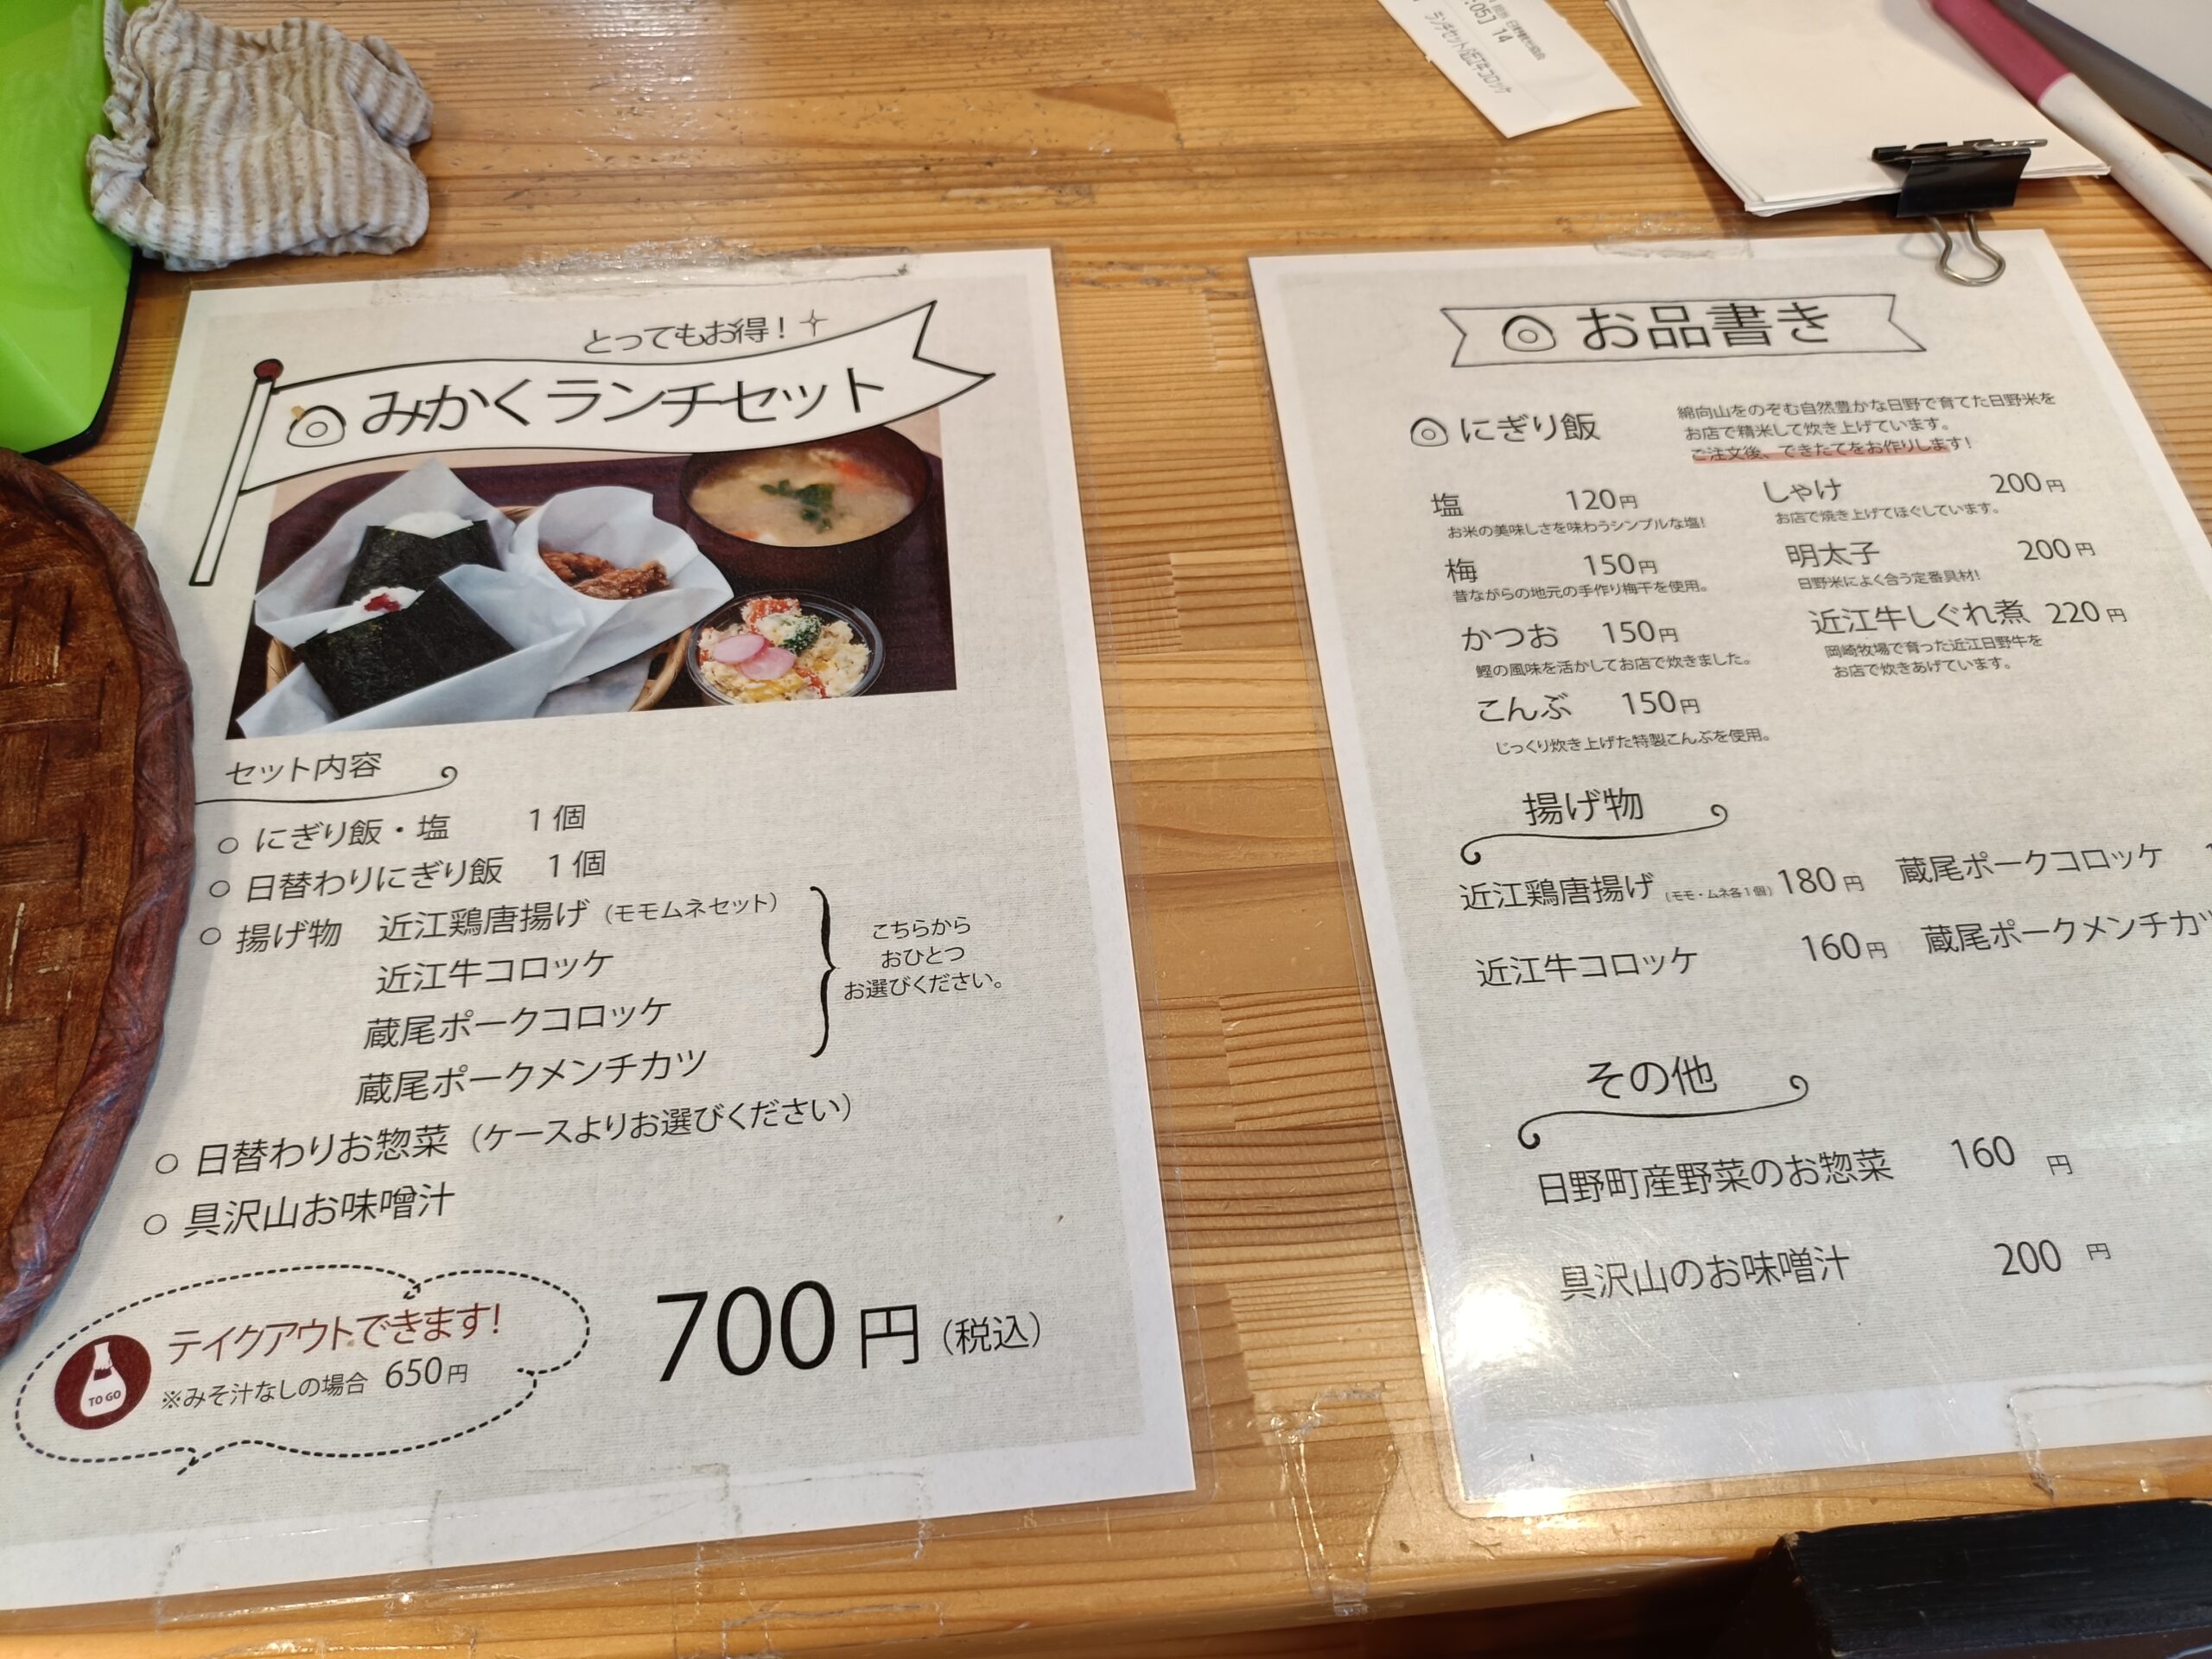 とってもお得！
みかくランチセット
セット内容
○ にぎり飯・塩 1個
○ 日替わりにぎり飯 1個
○ 揚げ物 近江鶏唐揚げ（モモムネセット）
近江牛コロッケ
蔵尾ポークコロッケ
蔵尾ポークメンチカツ
こちらから
おひとつ
お選びください。
○ 日替わりお惣菜（ケースよりお選びください）
○ 具沢山お味噌汁
テイクアウトできます！
※みそ汁なしの場合 650円
TO GO
700円（税込）
お品書き
にぎり飯
綿向山をのぞむ自然豊かな日野で育てた日野米を
お店で精米して炊き上げています。
ご注文後、できたてをお作りします！
塩 120円
お米の美味しさを味わうシンプルな塩！
梅 150円
昔ながらの地元の手作り梅干を使用。
かつお 150円
鰹の風味を活かしてお店で炊きました。
こんぶ 150円
じっくり炊き上げた特製こんぶを使用。
しゃけ 200円
お店で焼き上げてほぐしています。
明太子 200円
日野米によく合う定番具材！
近江牛しぐれ煮 220円
岡崎牧場で育った近江日野牛を
お店で炊きあげています。
揚げ物
近江鶏唐揚げ（モモ・ムネ各1個）180円 蔵尾ポークコロッケ
近江牛コロッケ 160円 蔵尾ポークメンチカツ
その他
日野町産野菜のお惣菜 160円
具沢山のお味噌汁 200円
:05] 14
ランチセット近江牛コロッケ